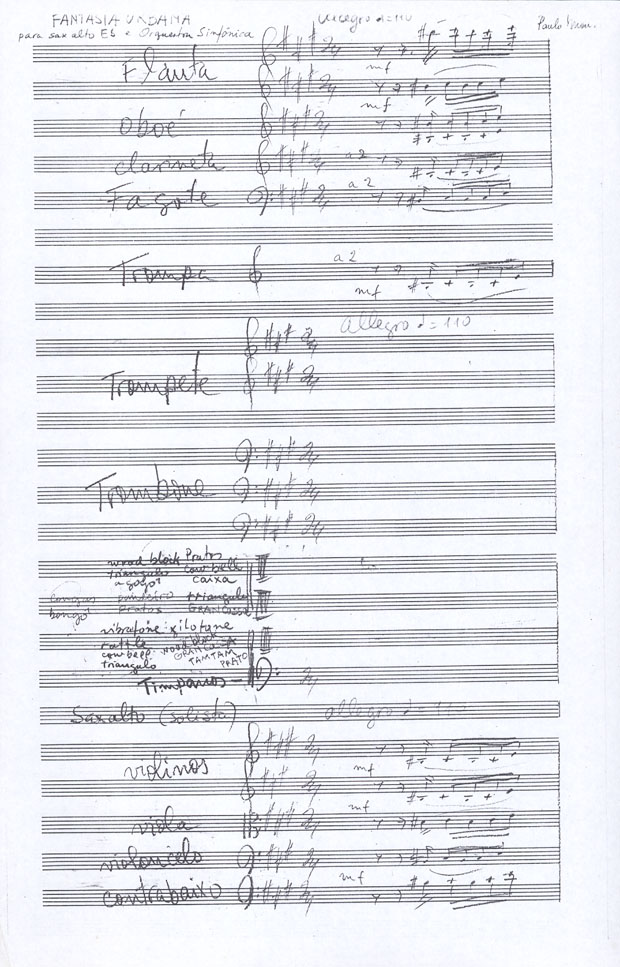 FANTASIA URBANA
para sax alto Eb e Orquestra Sinfônica
allegro ♩=110
Flauta
mf
mf
oboé
clarineta
a 2
Fagote
a 2
Trompa
a 2
mf
allegro ♩=110
Trompete
Trombone
wood block Pratos
triangulo cowbells
agogô caixa
congas pandeiro triangulo
bongô pratos GRANCASSA
vibrafone xilofone
rattle wood block
cowbell GRANCASSA
triangulo TAMTAM
PRATO
Timpanos
Sax alto (solista)
allegro ♩=110
violinos
mf
mf
viola
violoncelo
mf
contrabaixo